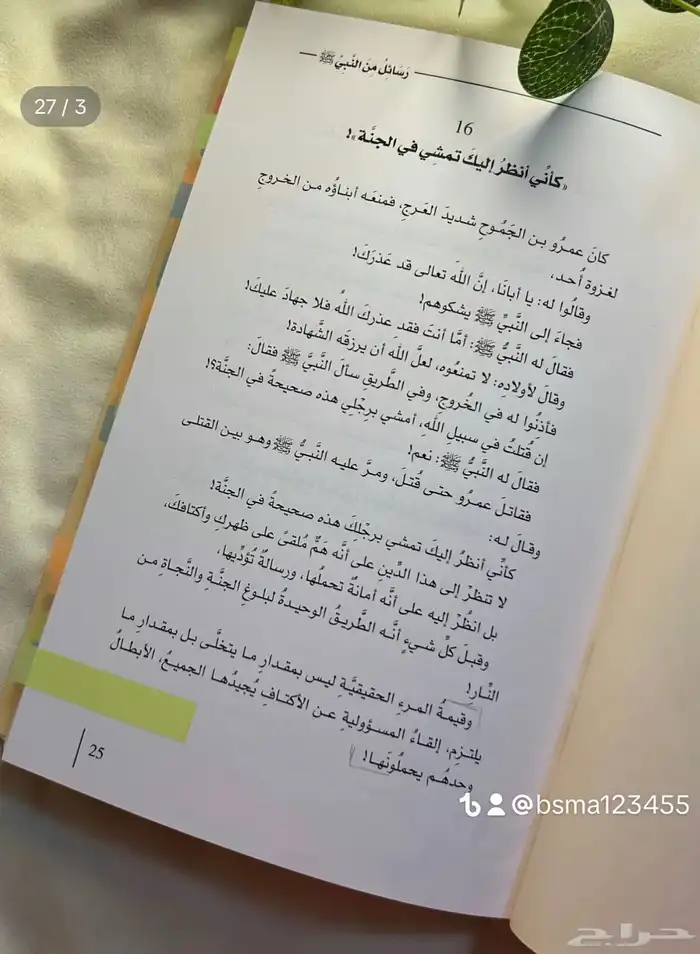 27 / 3
رَسَائِلُ مِنَ النَّبِيِّ ﷺ
16
«كأنِّي أنظرُ إليكَ تمشِي في الجنَّة»!
كانَ عمرُو بن الجَمُوحِ شديدَ العَرجِ، فمنعَه أبناؤُه من الخروجِ
لغزوة أُحد،
وقالُوا له: يا أبانَا، إنَّ اللهَ تعالى قد عَذركَ!
فجاءَ إلى النَّبيِّ ﷺ يشكوهم!
فقالَ له النَّبيُّ ﷺ: أمَّا أنتَ فقد عذركَ اللهُ فلا جهادَ عليكَ!
وقالَ لأولادِه: لا تمنعُوه، لعلَّ اللهَ أن يرزقَه الشَّهادة!
فأذنُوا له في الخُروجِ، وفي الطَّريقِ سألَ النَّبيَّ ﷺ فقالَ:
إن قُتلتُ في سبيلِ اللهِ، أمشي برجْلِي هذه صحيحةً في الجنَّة؟!
فقالَ له النَّبيُّ ﷺ: نعم!
فقاتلَ عمرُو حتى قُتلَ، ومرَّ عليه النَّبيُّ ﷺ وهو بين القتلى
وقالَ له:
كأنِّي أنظرُ إليكَ تمشي برجْلِكَ هذه صحيحةً في الجنَّة!
لا تنظرْ إلى هذا الدِّينِ على أنَّه هَمٌّ مُلقىً على ظهركِ وأكتافكَ،
بل انظُرْ إليه على أنَّه أمانةٌ تحملُها، ورسالةٌ تُؤدِّيها،
وقبلَ كلِّ شيءٍ أنَّه الطَّريقُ الوحيدةُ لبلوغِ الجنَّةِ والنَّجاةِ من
النَّارِ!
وقيمةُ المرءِ الحقيقيَّةِ ليس بمقدارِ ما يتخلَّى بل بمقدارِ ما
يلتزم، إلقاءُ المسؤوليةِ عن الأكتافِ يُجيدُها الجميعُ، الأبطالُ
وحدهُم يحملُونَها!
25
@bsma123455
حراج